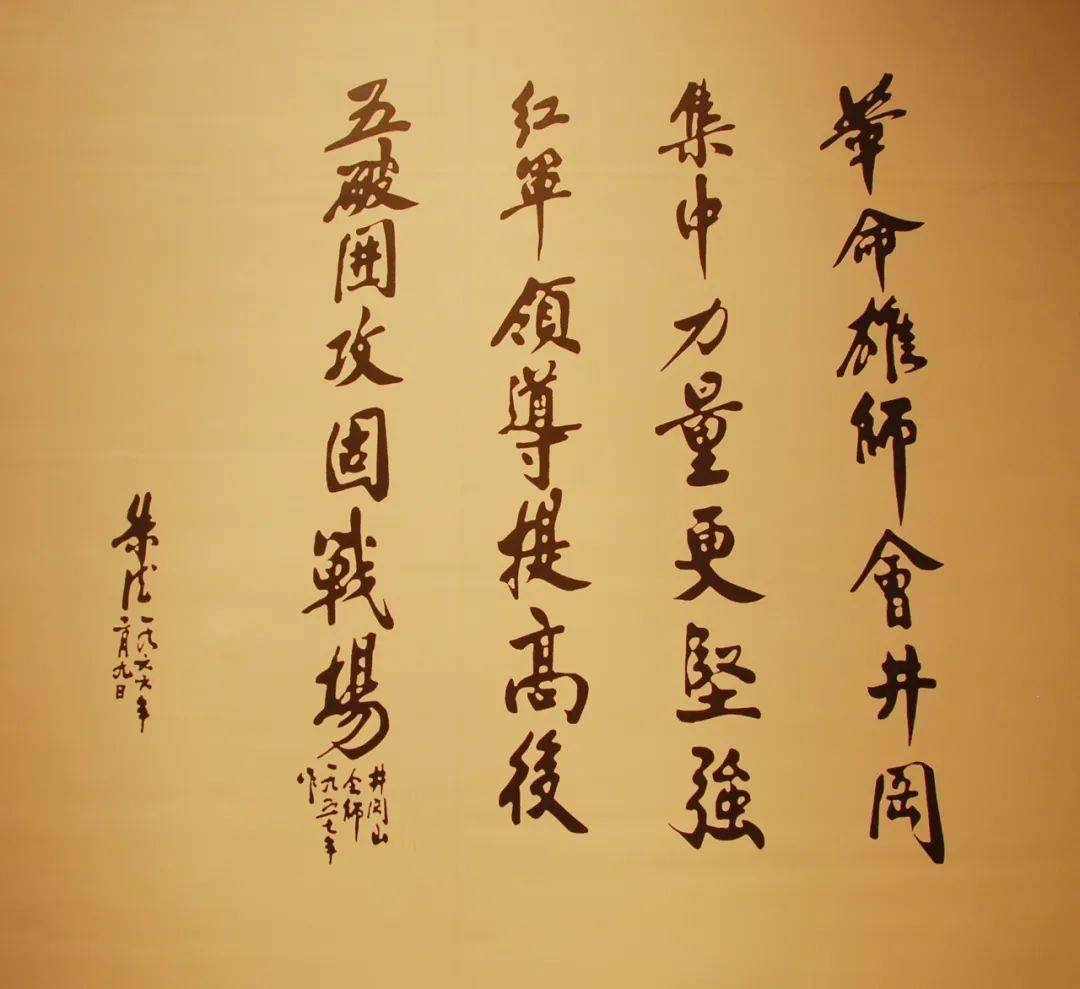 革命雄師會井岡
集中力量更堅強
紅軍領導提高後
五破圍攻固戰場
井岡山
会師
一九五七年
作
朱德 一九六六年
二月九日